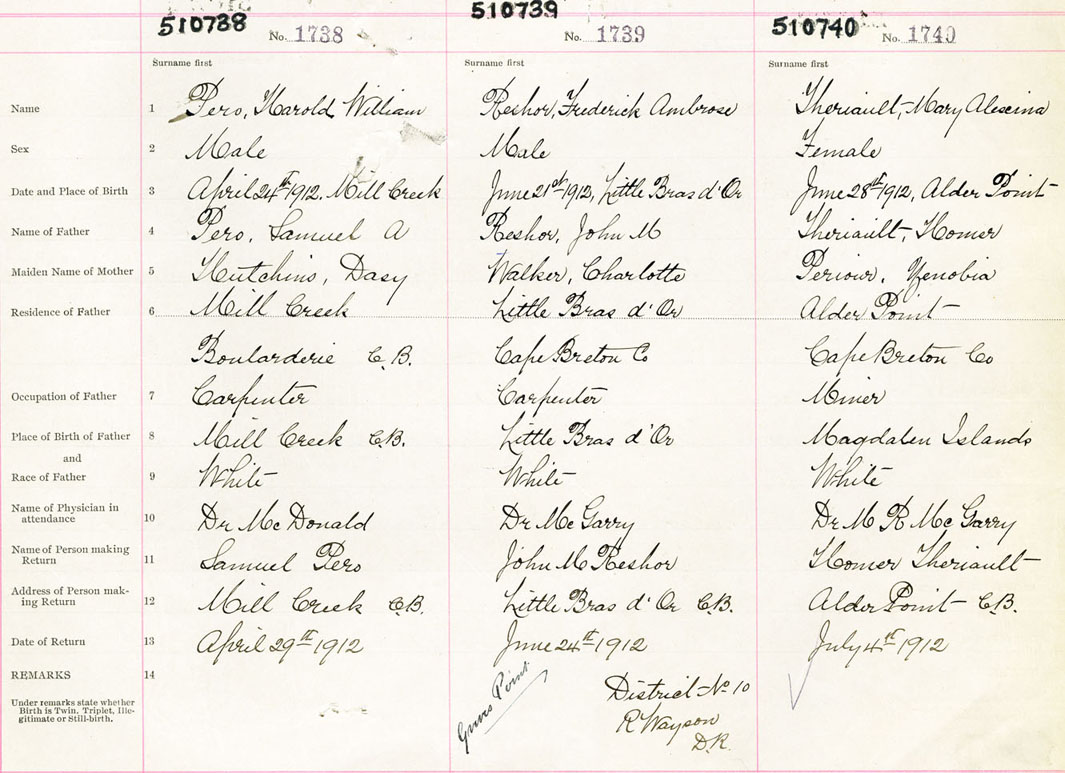 510738 510739 510740
No. 1738 No. 1739 No. 1740
Surname first Surname first Surname first
Name 1 Pero, Harold William Reshor, Frederick Ambrose Theriault, Mary Alescina
Sex 2 Male Male Female
Date and Place of Birth 3 April 24th 1912, Mill Creek June 21st 1912, Little Bras d'Or June 28th 1912, Alder Point
Name of Father 4 Pero, Samuel A Reshor, John M Theriault, Homer
Maiden Name of Mother 5 Hutchins, Dasy Walker, Charlotte Periour, Zenobia
Residence of Father 6 Mill Creek Little Bras d'Or Alder Point
Boularderie C.B. Cape Breton Co Cape Breton Co
Occupation of Father 7 Carpenter Carpenter Miner
Place of Birth of Father 8 Mill Creek C.B. Little Bras d'Or Magdalen Islands
and
Race of Father 9 White White White
Name of Physician in
attendance 10 Dr Mc Donald Dr Mc Garry Dr M R Mc Garry
Name of Person making
Return 11 Samuel Pero John M Reshor Homer Theriault
Address of Person mak-
ing Return 12 Mill Creek C.B. Little Bras d'Or C.B. Alder Point C.B.
Date of Return 13 April 29th 1912 June 24th 1912 July 4th 1912
REMARKS 14
Under remarks state whether
Birth is Twin, Triplet, Ille-
gitimate or Still-birth.
Point
District No 10
R Wayson
D.R.